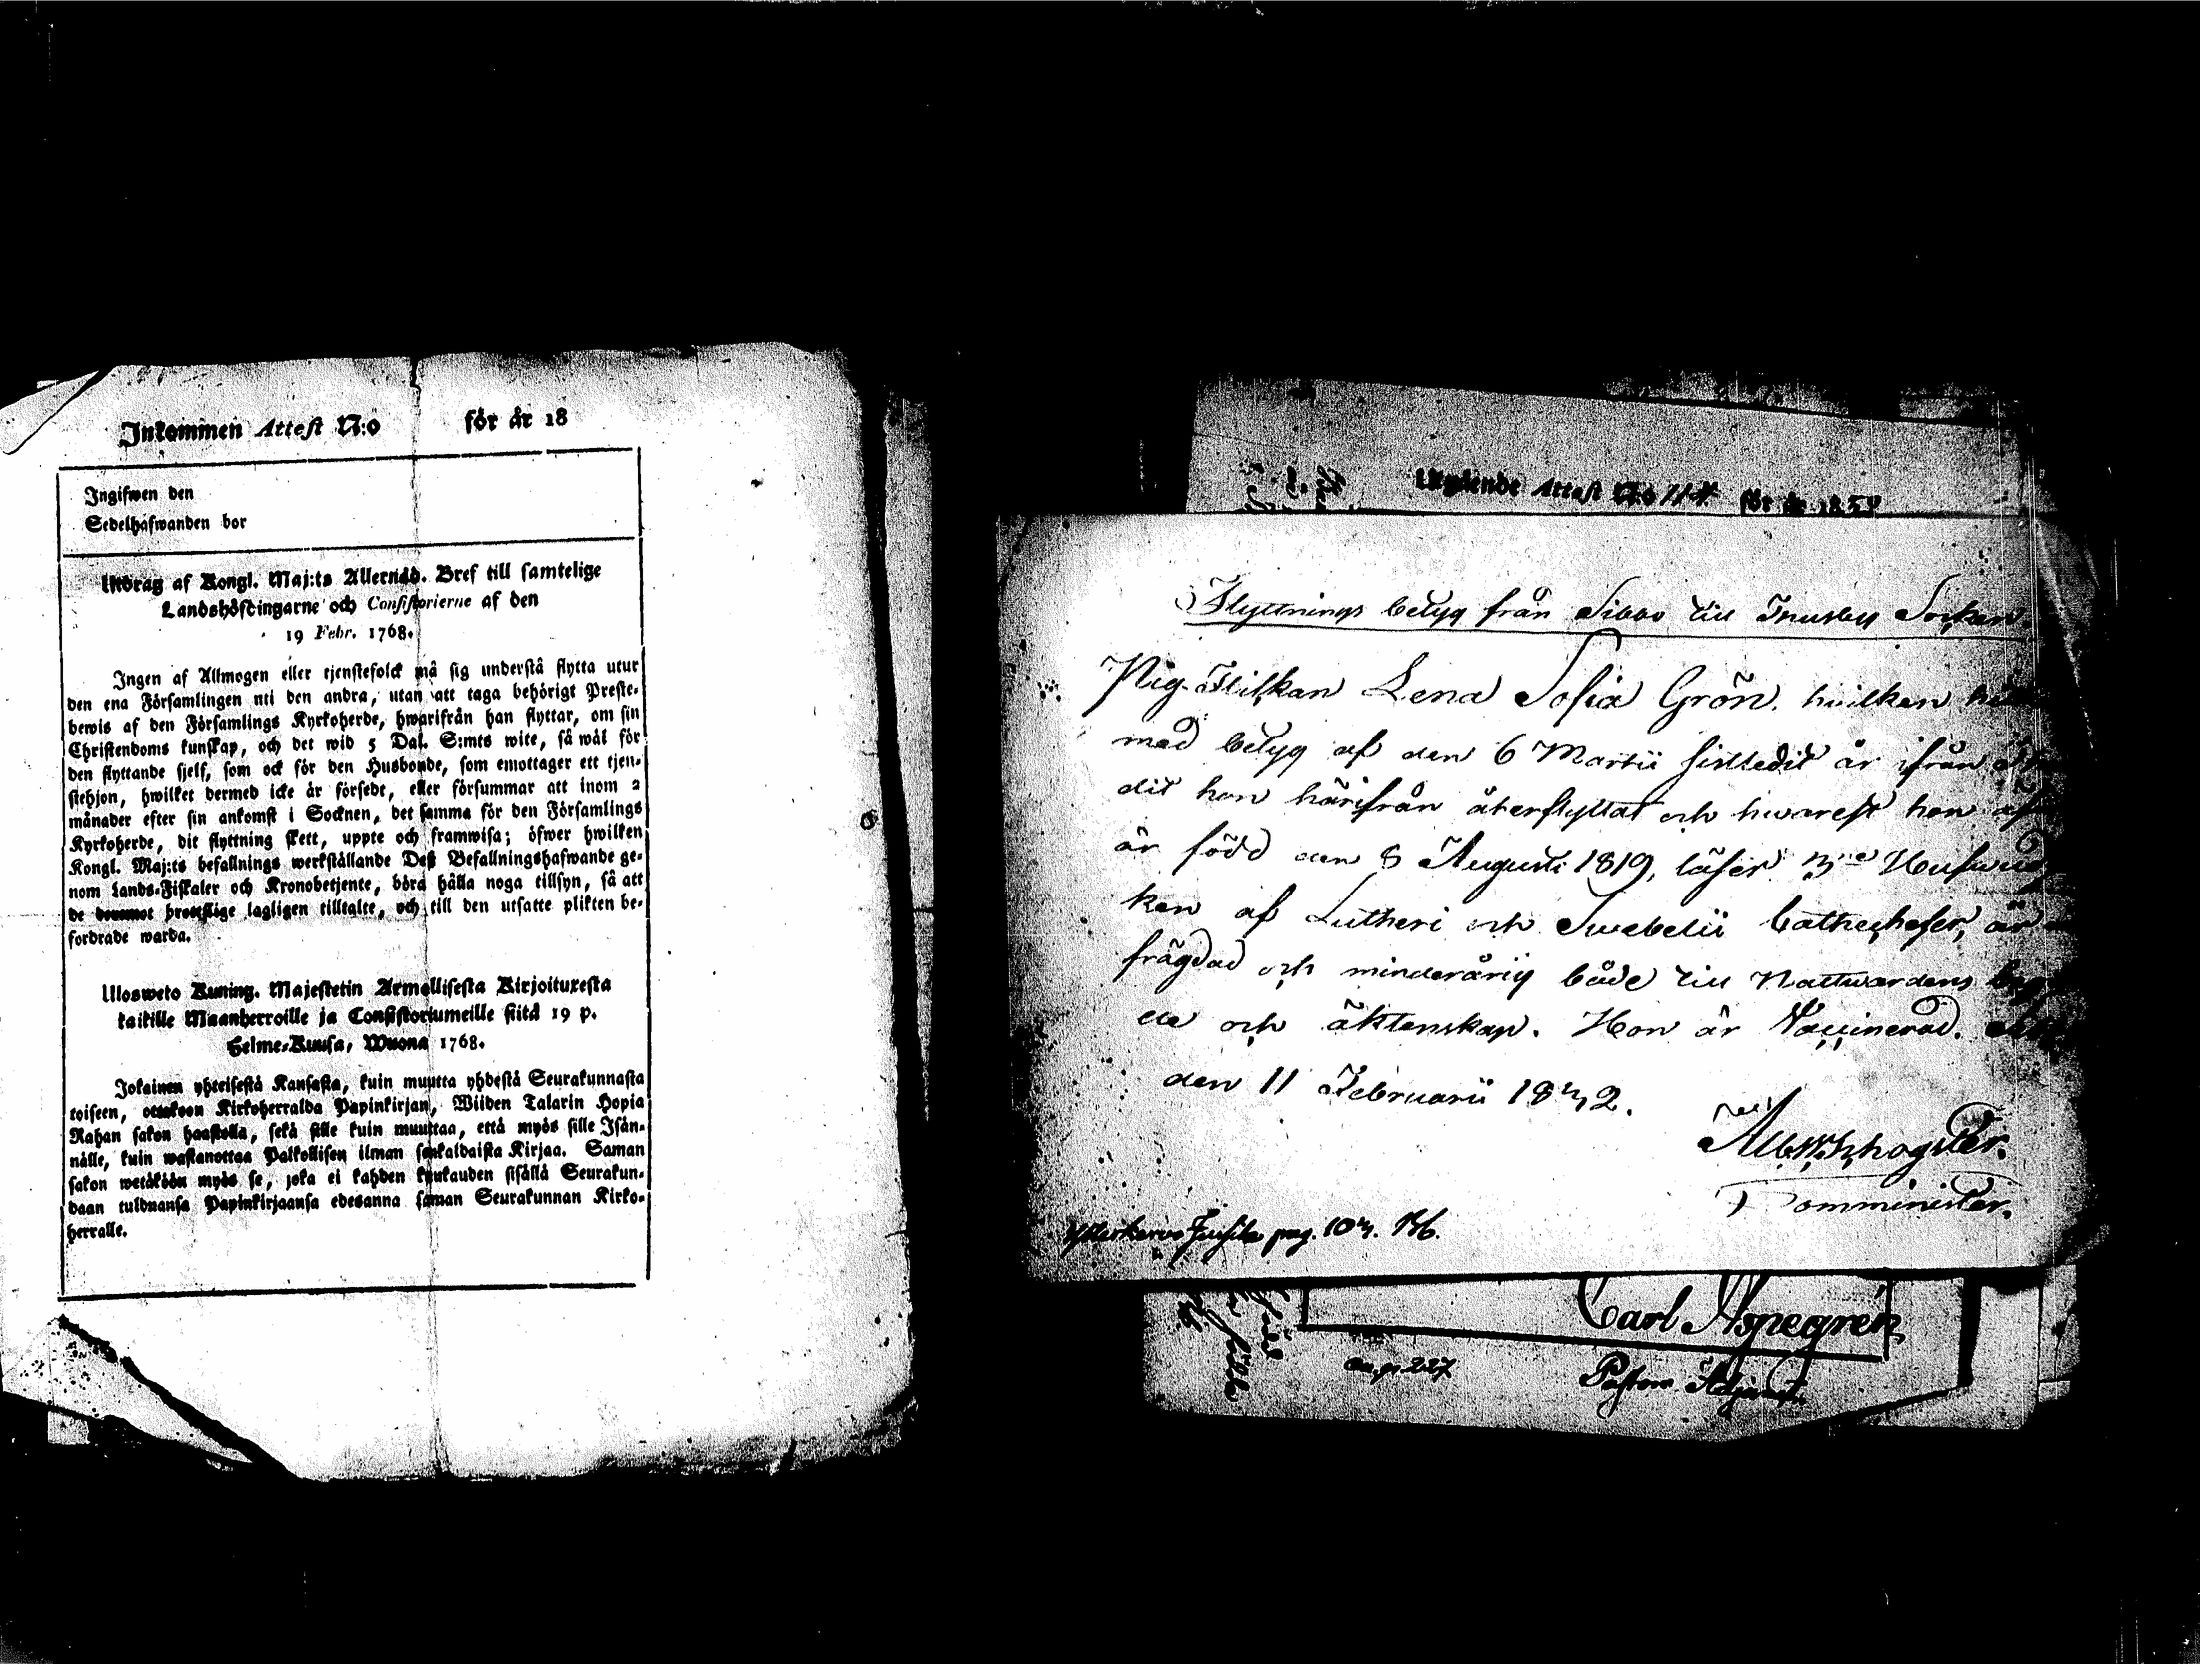 Inkommen Attest N:o för år 18
Ingifwen den
Sedelhafwanden bor
Utdrag af Kongl. Maj:ts Allernåd. Bref till samtelige
Landshöfdingarne och Consistorierne af den
19 Febr. 1768.
Ingen af Allmogen eller tjenstefolck må sig understå flytta utur
den ena Församlingen uti den andra, utan att taga behörigt Preste-
bewis af den Församlings Kyrkoherde, hwarifrån han flyttar, om sin
Christendoms kunskap, och det wid 5 Dal. S:mts wite, så wål för
den flyttande sjelf, som ock för den Husbonde, som emottager ett tjen-
stehjon, hwilket dermed icke är försedt, eller försummar att inom 2
månader efter sin ankomst i Socknen, det samma för den Församlings
Kyrkoherde, dit flyttning skett, uppte och framwisa; öfwer hwilken
Kongl. Maj:ts befallnings werkställande Deß Befallningshafwande ge-
nom Lands-Fiskaler och Kronobetjente, böra hålla noga tillsyn, så att
de lagligen tilltalte, och till den utsatte plikten be-
fordrade warda.
Ulosweto Kuning. Majestetin Armollisesta Kirjoituxesta
kaikille Maanherroille ja Consistoriumeille siitä 19 p.
Helme-Kuusa, Wuona 1768.
Jokainen yhteisestä Kansasta, kuin muutta yhdestä Seurakunnasta
toiseen, ottakoon Kirkoherralda Papinkirjan, Wiiden Talarin Hopia
Rahan sakon haastolla, sekä sille kuin muuttaa, että myös sille Isän-
nälle, kuin wastanottaa Palkollisen ilman senkaldaista Kirjaa. Saman
sakon wetäköön myös se, joka ei kahden kuukauden sisällä Seurakun-
daan tulduansa Papinkirjaansa edesanna saman Seurakunnan Kirko-
herralle.
Attest No 114 för år 1858
Flyttnings betyg från Sibbo till Tnusby Socken
Pig-Flickan Lena Sofia Grön, hvilken
med betyg af den 6 Martii sistledit år ifrån
dit hon härifrån återflyttat och hwarest hon
är född den 8 Augusti 1819, läser
ken af Lutheri och Swebelii Cathecheser, är
frägdad och minderårig både till Nattwardens
de och äktenskap. Hon är Vaccinerad.
den 11 Februarii 1832.
Comminister.
pag. 103.
Carl Aspegrén
Pastors Adjunct.
pag. 227